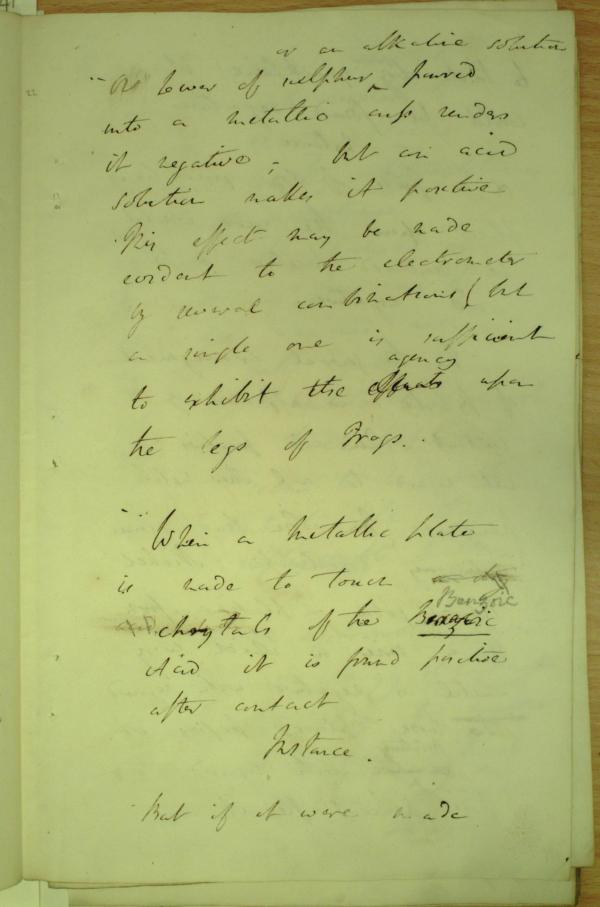 or an alkaline solution
of sulphur poured
into a metallic cup renders
it negative; but an acid
solution makes it positive
This effect may be made
evident to the electrometer
by several combinations, but
a single one is sufficient
agency
to exhibit the effects upon
the legs of Frogs.
When a metallic plate
is made to touch a dry
Benzoic
chrystals of the Benzoic
Acid it is found positive
after contact
Instance.
But if it were made